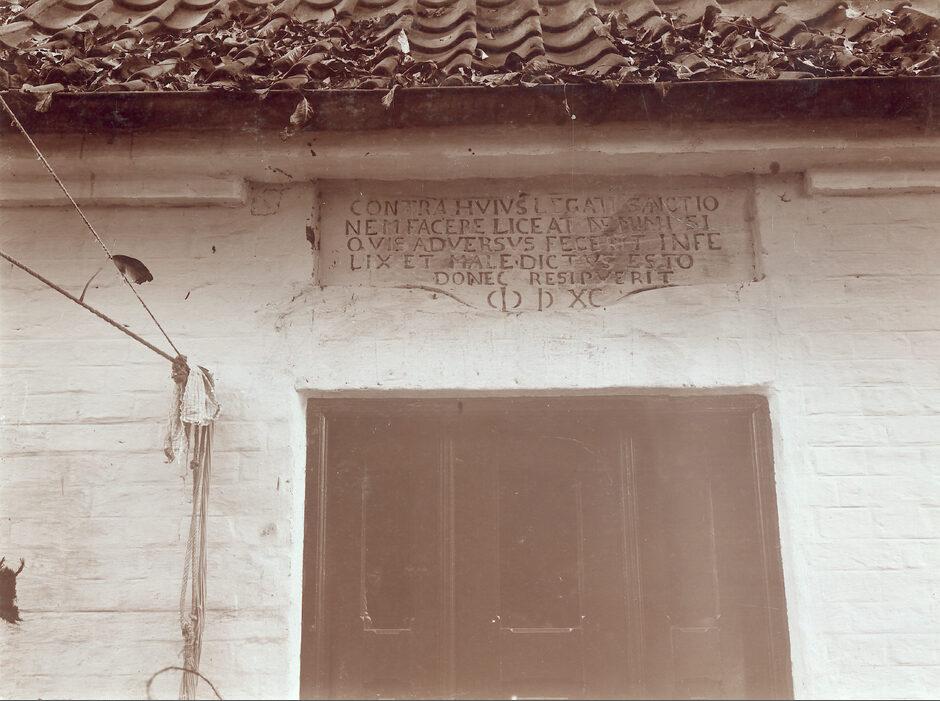 CONTRA HVIVS LEGATI SANCTIO
NEM FACERE LICEAT NEMINI SI
QVIS ADVERSVS FECERIT INFE
LIX ET MALEDICTVS ESTO
DONEC RESIPVERIT
CIↃ IↃ XC